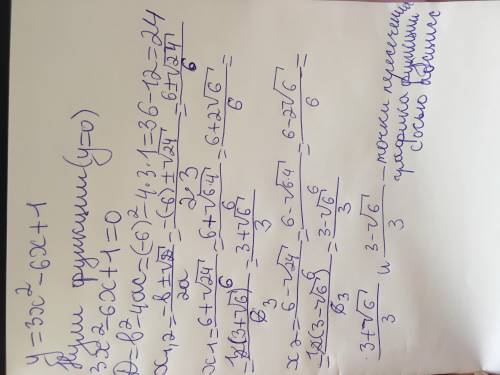 y = 3x² - 6x + 1
Нули функции (y=0)
3x² - 6x + 1 = 0
D = b² - 4ac = (-6)² - 4·3·1 = 36 - 12 = 24
x₁,₂ = (-b ± √D)/2a = (-(-6) ± √24)/(2·3) = (6 ± √24)/6
x₁ = (6 + √24)/6 = (6 + √6·4)/6 = (6 + 2√6)/6 =
= 2(3 + √6)/6 3 = (3 + √6)/3
x₂ = (6 - √24)/6 = (6 - √6·4)/6 = (6 - 2√6)/6 =
= 2(3 - √6)/6 3 = (3 - √6)/3
(3 + √6)/3 и (3 - √6)/3 - точки пересечения
графика функции
с осью абсцисс